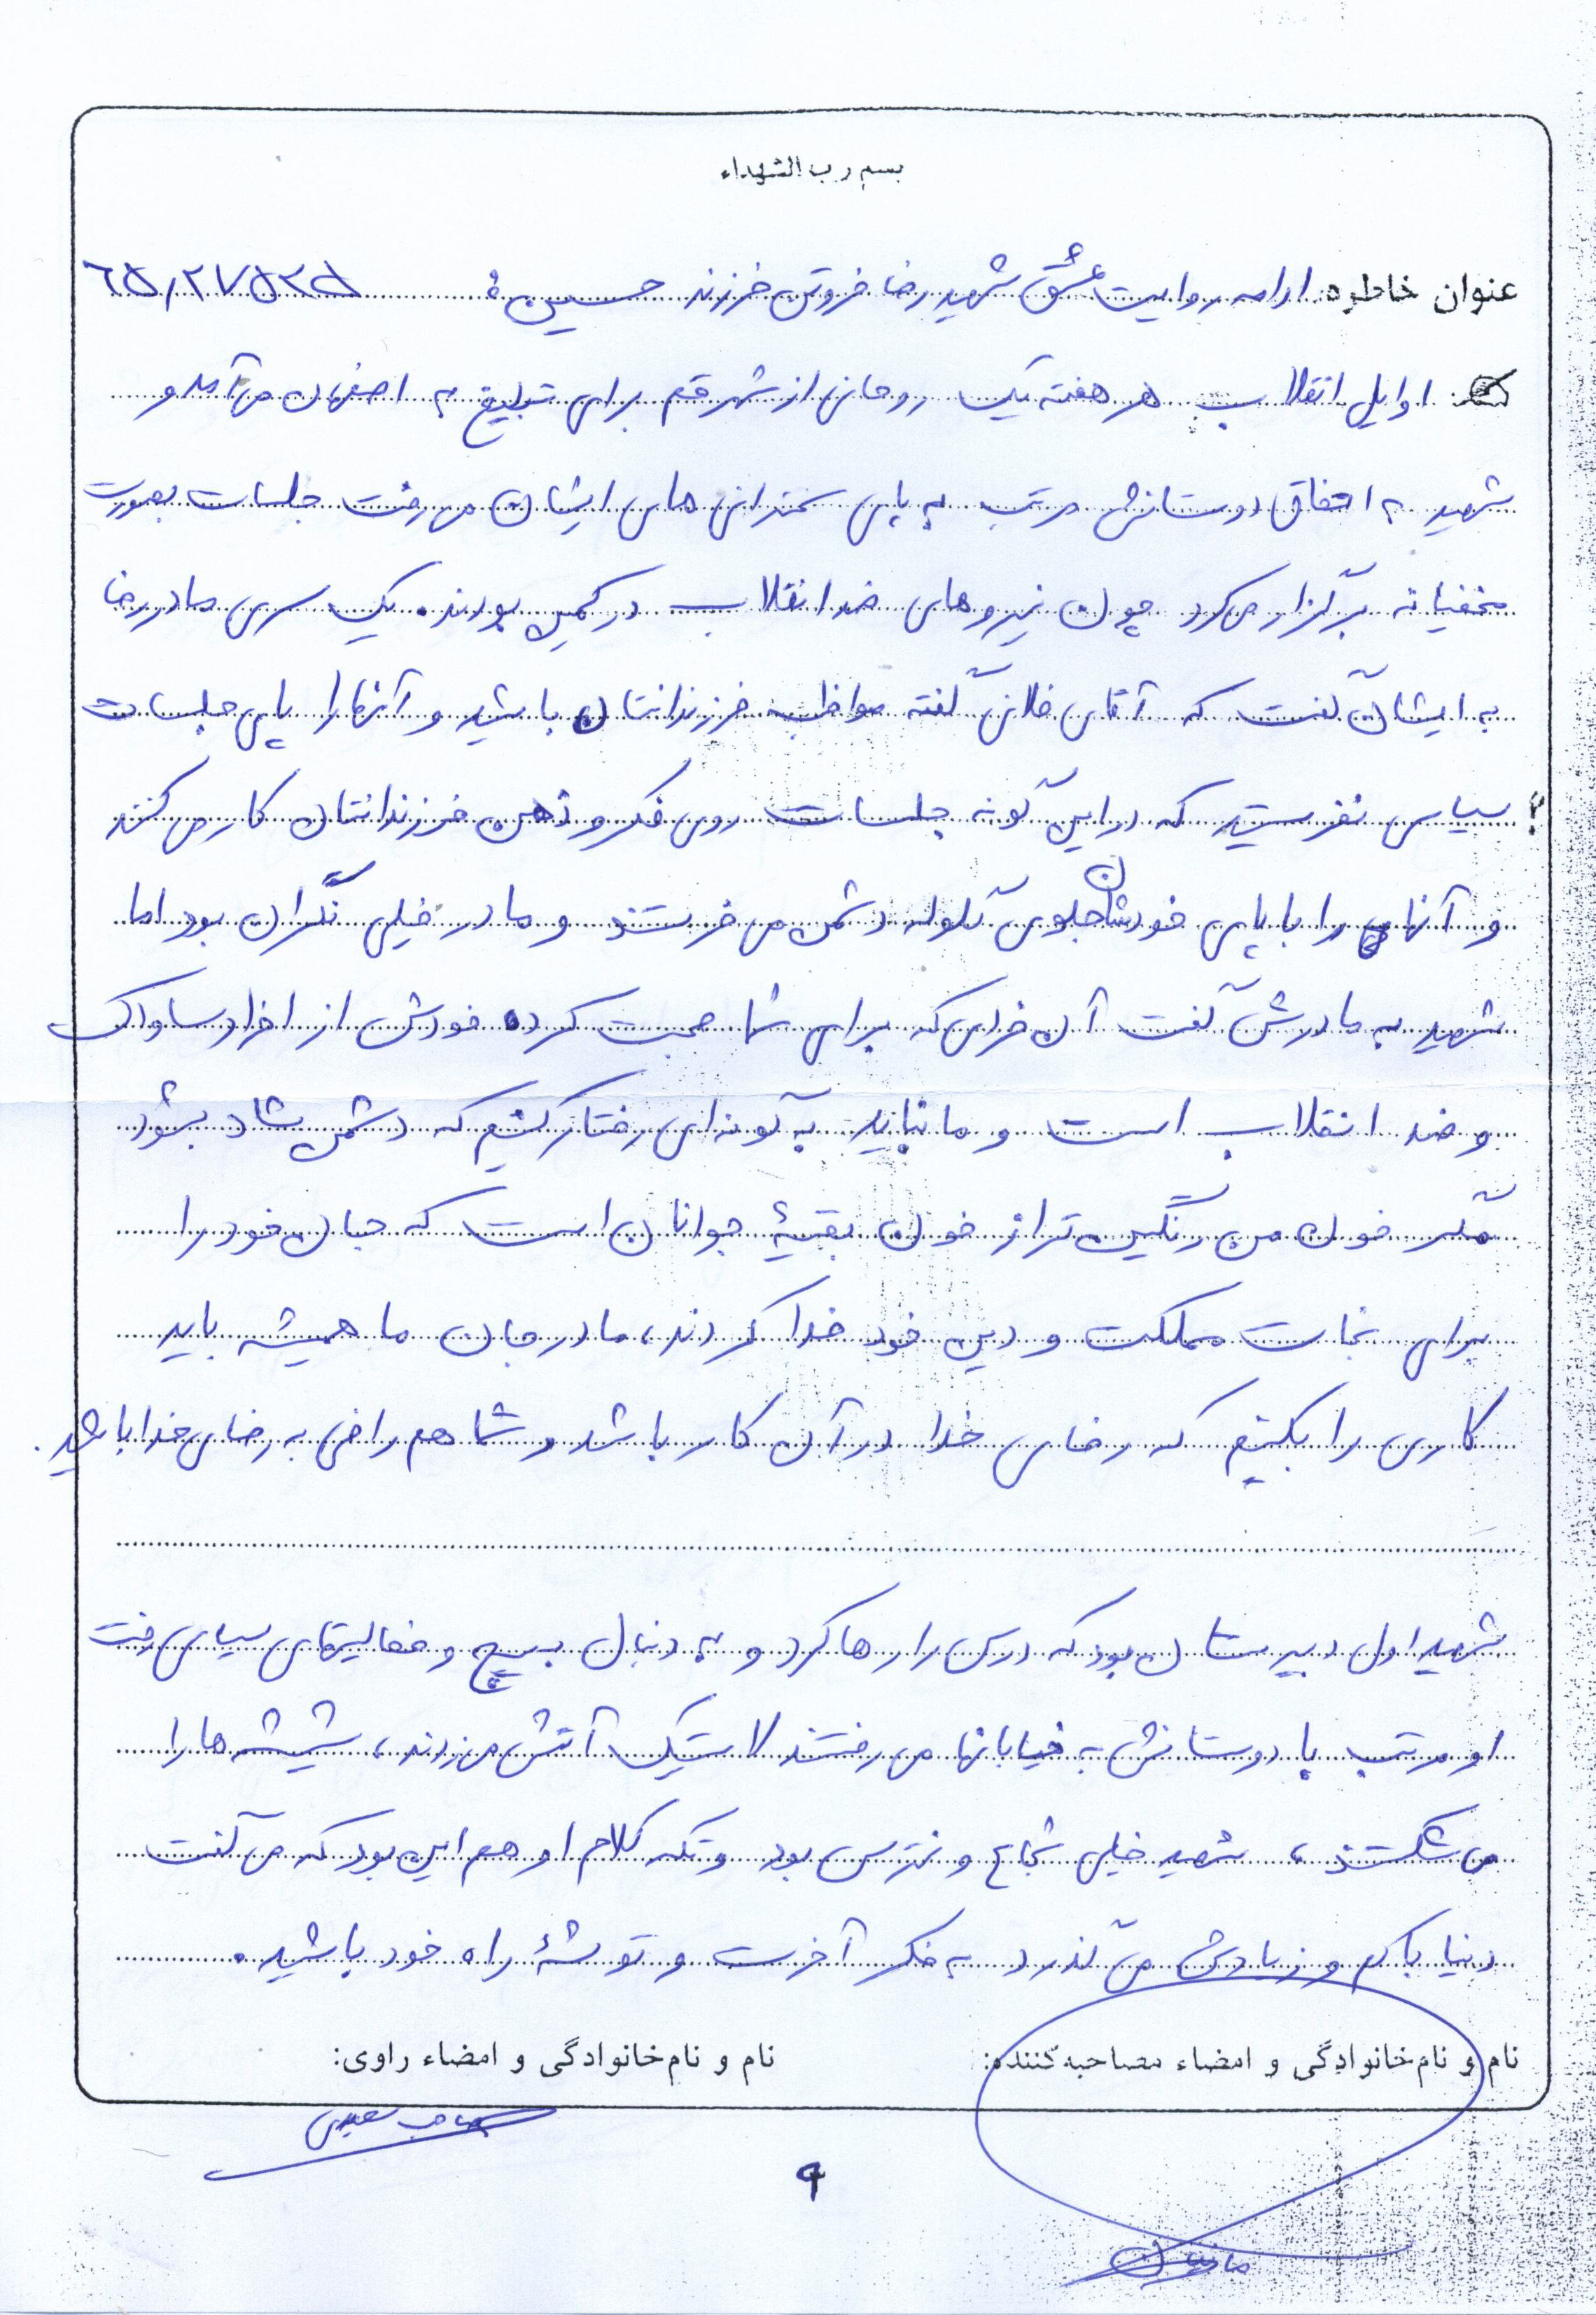 بسم رب الشهداء
عنوان خاطره ادامه روایت عشق شهید رضا فروتن فرزند حسین: ۶۵٫۲۷۵۲۵
اوایل انقلاب هر هفته یک روحانی از شهر قم برای تبلیغ به اصفهان می‌آمد و
شهید به اتفاق دوستانش مرتب به پای سخنرانی های ایشان می رفت جلسات بصورت
مخفیانه برگزار می‌کرد چون نیروهای ضد انقلاب در کمین بودند. یک سری مادر رضا
به ایشان گفت که آقای فلانی گفته مواظب فرزندانتان باشید و آنها را پای جلسات
سیاسی نفرستید که در این گونه جلسات روی فکر و ذهن فرزندانتان کار می کنند
و آنها را با پای خودشان جلوی گلوله دشمن می فرستند و مادر خیلی نگران بود اما
شهید به مادرش گفت آن فردی که برای شما صحبت کرده خودش از افراد ساواک
و ضد انقلاب است و ما نباید به گونه‌ای رفتار کنیم که دشمن شاد بشود
مگر خون من رنگین تر از خون بقیۀ جوانان است که جان خود را
برای نجات مملکت و دین خود فدا کردند، مادر جان ما همیشه باید
کاری را بکنیم که رضای خدا در آن کار باشد و شما هم راضی به رضای خدا باشید.
شهید اول دبیرستان بود که درس را رها کرد و به دنبال بسیج و فعالیتهای سیاسی رفت
او مرتب با دوستانش به خیابانها می رفتند لاستیک آتش می زدند، شیشه ها را
می شکستند، شهید خیلی شجاع و نترس بود و تکه کلام او هم این بود که می گفت
دنیا با کم و زیادش می گذرد به فکر آخرت و توشۀ راه خود باشید.
نام و نام خانوادگی و امضاء مصاحبه کننده: نام و نام خانوادگی و امضاء راوی:
۹